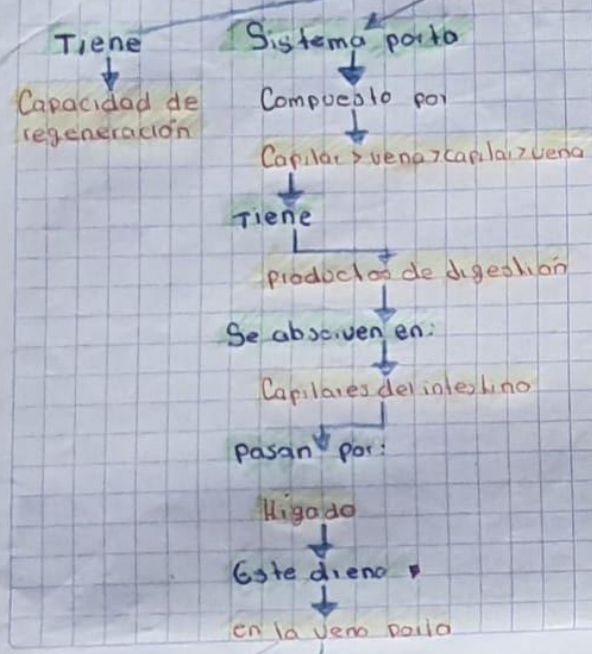 Tiene
Capacidad de
regeneración
Sistema porta
Compuesto por
Capilar > vena > capilar > vena
Tiene
productos de digestión
Se absorven en:
Capilares del intestino
Pasan por:
Higado
Este drena
en la vena porta